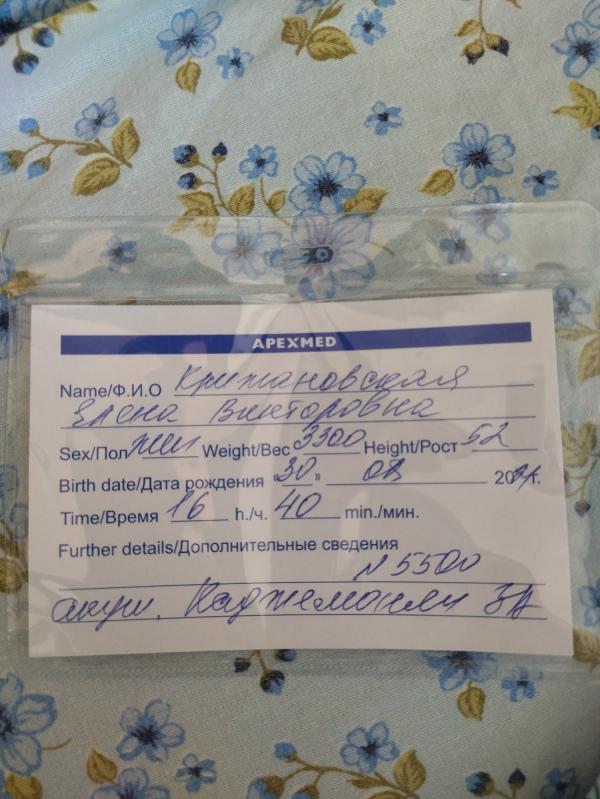 APEXMED
Name/Ф.И.О Крижановская
Елена Викторовна
Sex/Пол жен Weight/Вес 3300 Height/Рост 52
Birth date/Дата рождения «30» 20 г.
Time/Время 16 h./ч. 40 min./мин.
Further details/Дополнительные сведения
№5500
акуш.